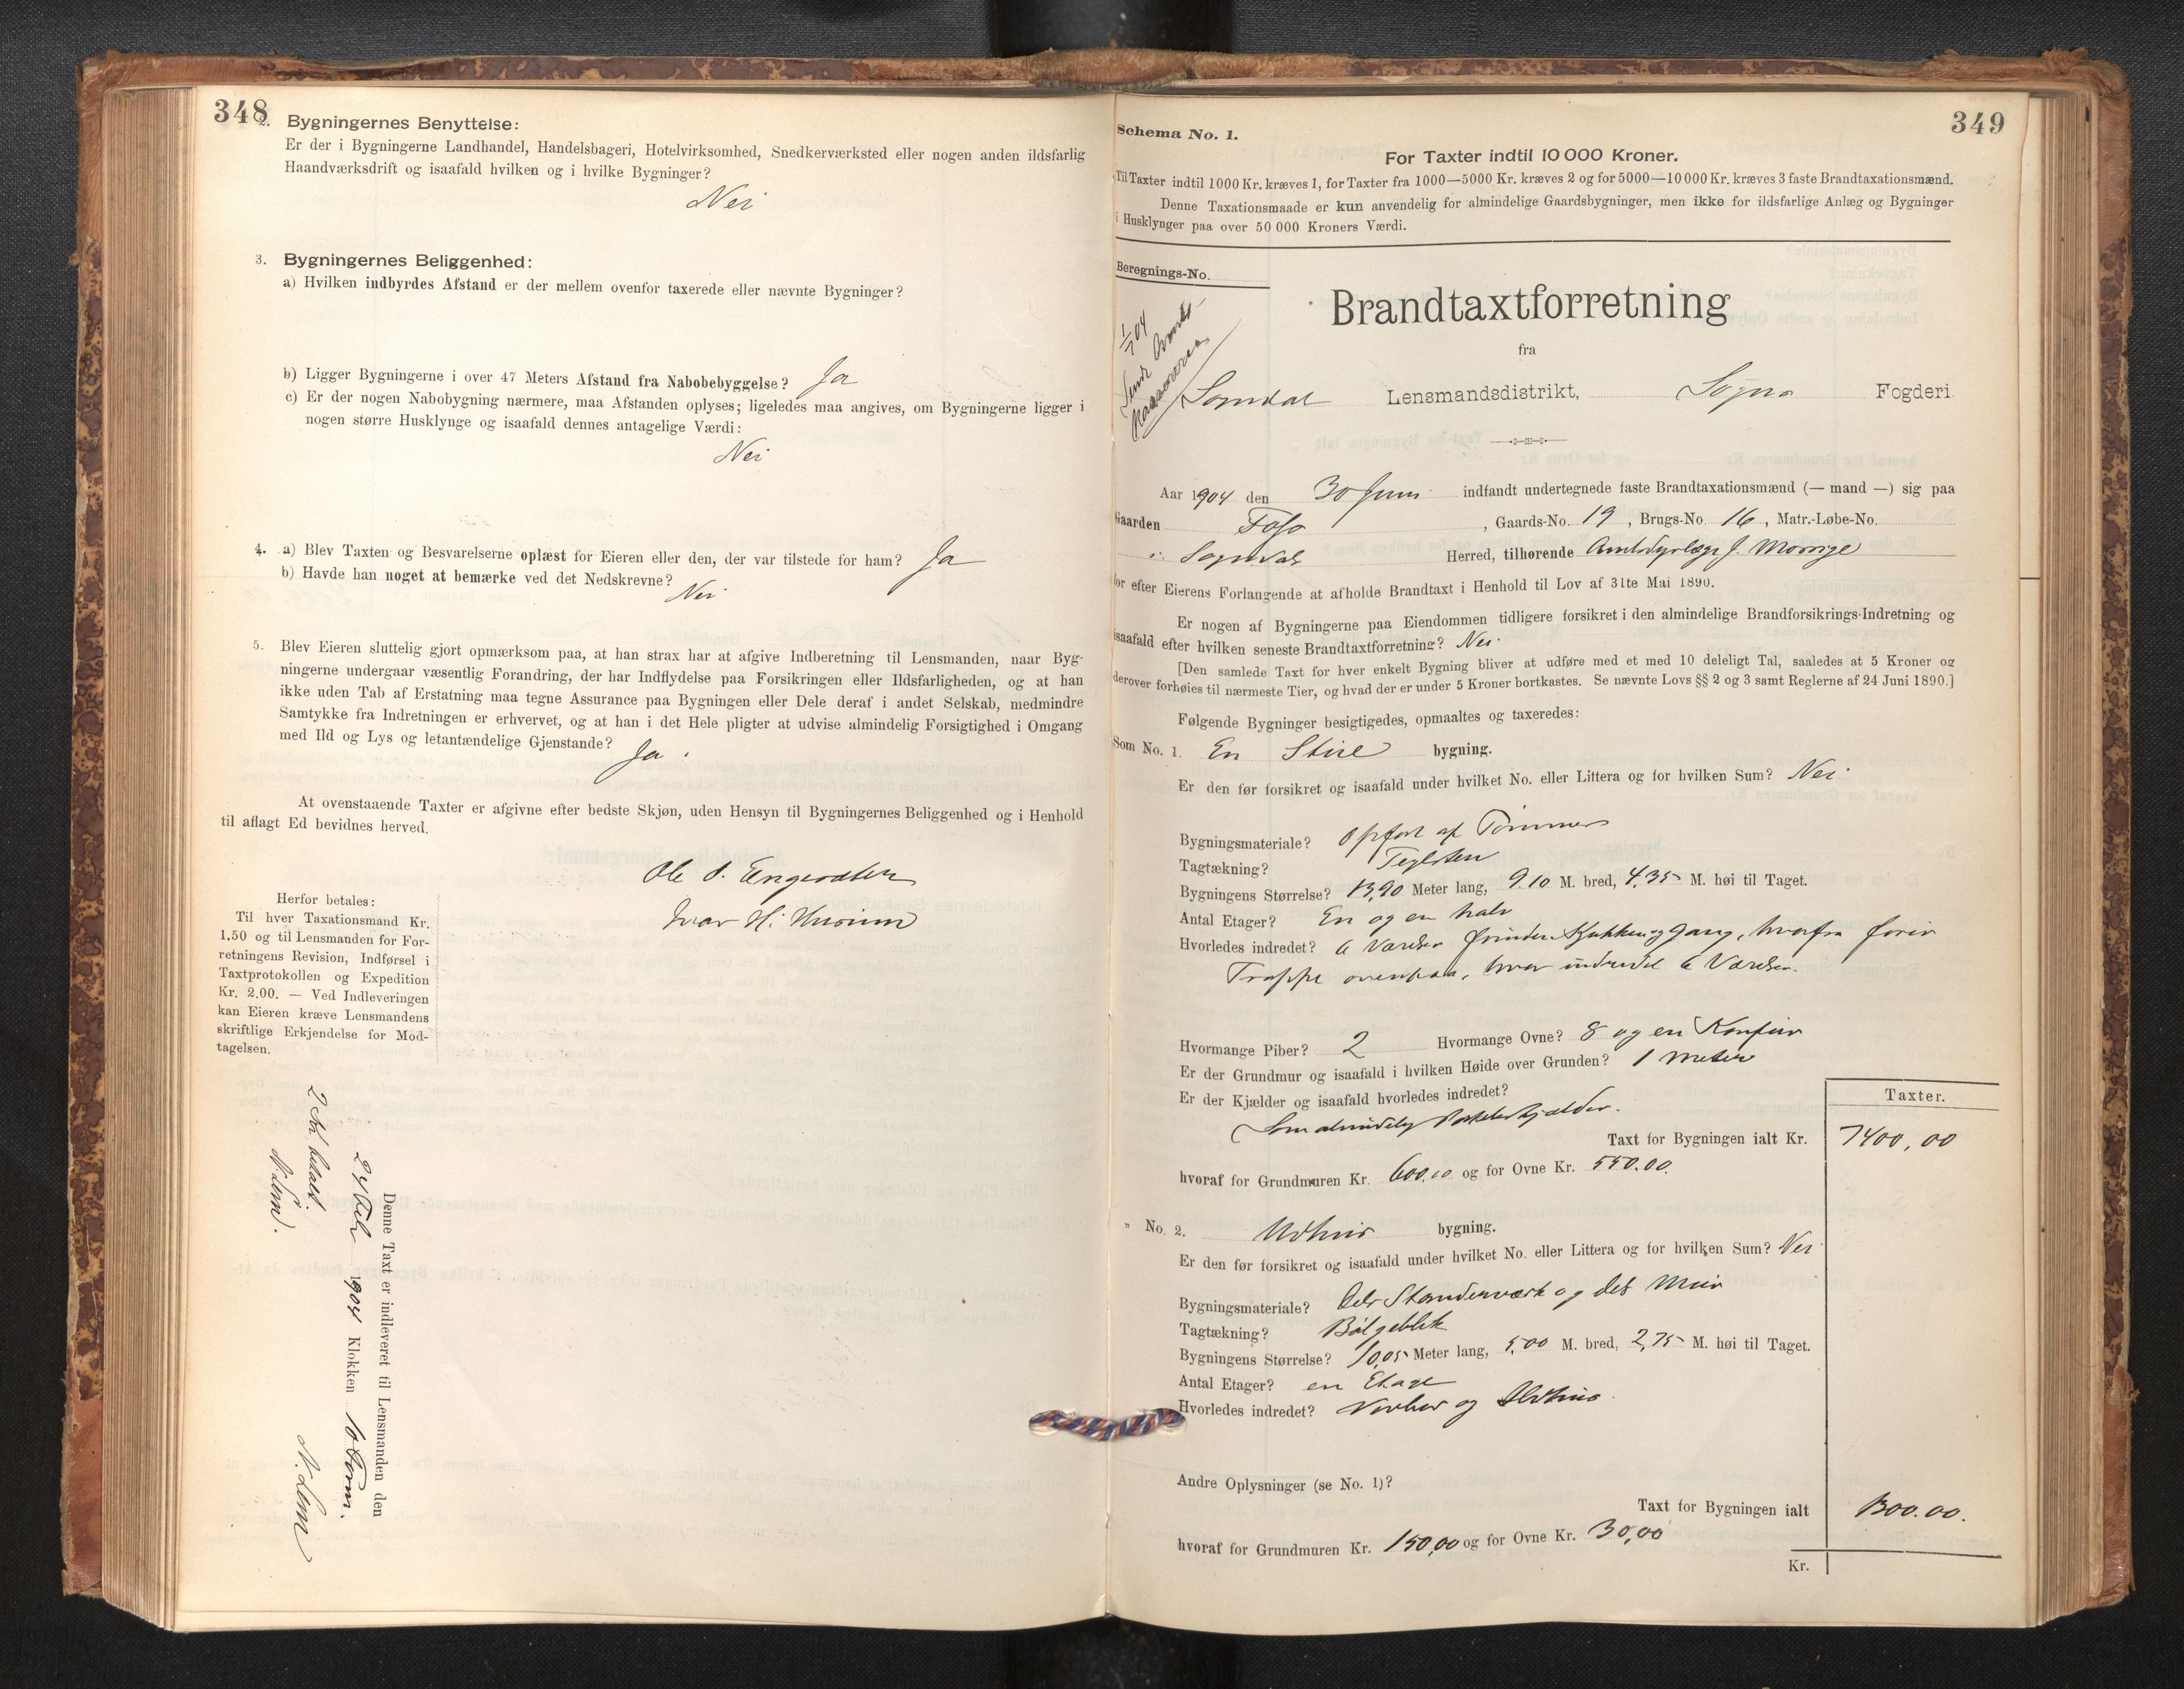 348
2. Bygningernes Benyttelse:
Er der i Bygningerne Landhandel, Handelsbageri, Hotelvirksomhed, Snedkerværksted eller nogen anden ildsfarlig
Haandværksdrift og isaafald hvilken og i hvilke Bygninger?
Nei
3. Bygningernes Beliggenhed:
a) Hvilken indbyrdes Afstand er der mellem ovenfor taxerede eller nævnte Bygninger?
b) Ligger Bygningerne i over 47 Meters Afstand fra Nabobebyggelse? Ja
c) Er der nogen Nabobygning nærmere, maa Afstanden oplyses; ligeledes maa angives, om Bygningerne ligger i
nogen større Husklynge og isaafald dennes antagelige Værdi:
Nei
4. a) Blev Taxten og Besvarelserne oplæst for Eieren eller den, der var tilstede for ham? Ja
b) Havde han noget at bemærke ved det Nedskrevne?
Nei
5. Blev Eieren sluttelig gjort opmærksom paa, at han strax har at afgive Indberetning til Lensmanden, naar Byg-
ningerne undergaar væsentlig Forandring, der har Indflydelse paa Forsikringen eller Ildsfarligheden, og at han
ikke uden Tab af Erstatning maa tegne Assurance paa Bygningen eller Dele deraf i andet Selskab, medmindre
Samtykke fra Indretningen er erhvervet, og at han i det Hele pligter at udvise almindelig Forsigtighed i Omgang
med Ild og Lys og letantændelige Gjenstande? Ja.
At ovenstaaende Taxter er afgivne efter bedste Skjøn, uden Hensyn til Bygningernes Beliggenhed og i Henhold
til aflagt Ed bevidnes herved.
Ole
Ivar H.
Herfor betales:
Til hver Taxationsmand Kr.
1.50 og til Lensmanden for For-
retningens Revision, Indførsel i
Taxtprotokollen og Expedition
Kr. 2.00. — Ved Indleveringen
kan Eieren kræve Lensmandens
skriftlige Erkjendelse for Mod-
tagelsen.
Denne Taxt er indleveret til Lensmanden den
1904 Klokken 10 Form.
N. Lem
2 Kr betalt.
N. Lem.
349
Schema No. 1.
For Taxter indtil 10 000 Kroner.
Til Taxter indtil 1000 Kr. kræves 1, for Taxter fra 1000—5000 Kr. kræves 2 og for 5000—10 000 Kr. kræves 3 faste Brandtaxationsmænd.
Denne Taxationsmaade er kun anvendelig for almindelige Gaardsbygninger, men ikke for ildsfarlige Anlæg og Bygninger
i Husklynger paa over 50 000 Kroners Værdi.
Beregnings-No.
1/7 04
Sendt
Brandtaxtforretning
fra
Sogndal Lensmandsdistrikt, Sogns Fogderi.
Aar 1904 den 30 Juni indfandt undertegnede faste Brandtaxationsmænd (— mand —) sig paa
Gaarden Foss, Gaards-No. 19, Brugs-No. 16, Matr.-Løbe-No.
i Sogndal Herred, tilhørende Amtsdyrlæge J.
for efter Eierens Forlangende at afholde Brandtaxt i Henhold til Lov af 31te Mai 1890.
Er nogen af Bygningerne paa Eiendommen tidligere forsikret i den almindelige Brandforsikrings-Indretning og
isaafald efter hvilken seneste Brandtaxtforretning? Nei.
[Den samlede Taxt for hver enkelt Bygning bliver at udføre med et med 10 deleligt Tal, saaledes at 5 Kroner og
derover forhøies til nærmeste Tier, og hvad der er under 5 Kroner bortkastes. Se nævnte Lovs §§ 2 og 3 samt Reglerne af 24 Juni 1890.]
Følgende Bygninger besigtigedes, opmaaltes og taxeredes:
Som No. 1. En bygning.
Er den før forsikret og isaafald under hvilket No. eller Littera og for hvilken Sum? Nei.
Bygningsmateriale? Opført af Tømmer
Tagtækning? Teglsten
Bygningens Størrelse? 13,90 Meter lang, 9.10 M. bred, 4,35 M. høi til Taget.
Antal Etager? En og en halv
Hvorledes indredet? 6 Værelser foruden Kjøkken og Gang, hvorfra fører
Trappe ovenpaa, hvor indredet 6 Værelser.
Hvormange Piber? 2 Hvormange Ovne? 8 og en Komfur
Er der Grundmur og isaafald i hvilken Høide over Grunden? 1 Meter
Er der Kjælder og isaafald hvorledes indredet?
Som almindelig Potetkjælder.
Taxter.
Taxt for Bygningen ialt Kr. 7400,00
hvoraf for Grundmuren Kr. 600.00 og for Ovne Kr. 550.00.
" No. 2. Udhus bygning.
Er den før forsikret og isaafald under hvilket No. eller Littera og for hvilken Sum? Nei
Bygningsmateriale? Dels Stenderværk og dels Mur
Tagtækning? Bølgeblik
Bygningens Størrelse? 10,05 Meter lang, 5,00 M. bred, 2,75 M. høi til Taget.
Antal Etager? en Etage
Hvorledes indredet? og Ildhus.
Andre Oplysninger (se No. 1)?
Taxt for Bygningen ialt 1300.00.
hvoraf for Grundmuren Kr. 150,00 og for Ovne Kr. 30,00
Kr.